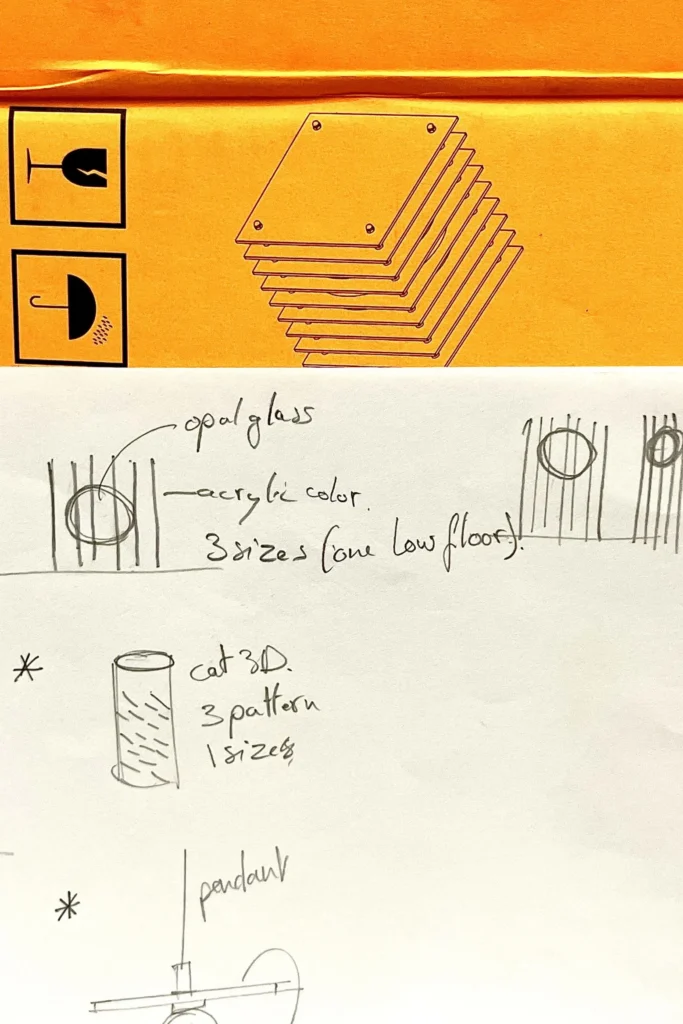 opal glass
acrylic color.
3 sizes (one low floor).
* cat 3D.
3 pattern
1 sizes
* pendant